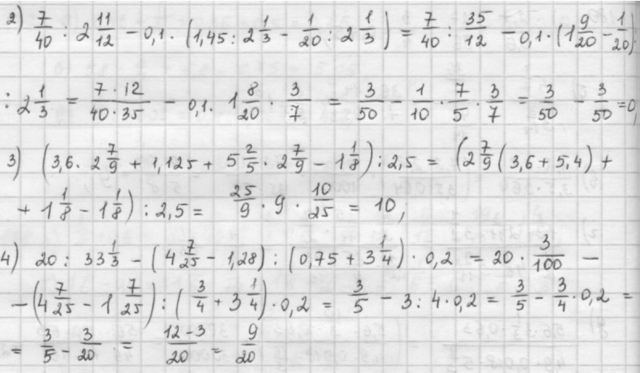 2) 7/40 : 2 11/12 − 0,1 · (1,45 : 2 1/3 − 1/20 : 2 1/3) = 7/40 : 35/12 − 0,1 · (1 9/20 − 1/20) :
: 2 1/3 = 7·12/40·35 − 0,1 · 1 8/20 · 3/7 = 3/50 − 1/10 · 7/5 · 3/7 = 3/50 − 3/50 = 0,
3) (3,6 · 2 7/9 + 1,125 + 5 2/5 · 2 7/9 − 1 1/8) : 2,5 = (2 7/9 (3,6 + 5,4) +
+ 1 1/8 − 1 1/8) : 2,5 = 25/9 · 9 · 10/25 = 10;
4) 20 : 33 1/3 − (4 7/25 − 1,28) : (0,75 + 3 1/4) · 0,2 = 20 · 3/100 −
− (4 7/25 − 1 7/25) : (3/4 + 3 1/4) · 0,2 = 3/5 − 3 : 4 · 0,2 = 3/5 − 3/4 · 0,2 =
= 3/5 − 3/20 = 12−3/20 = 9/20